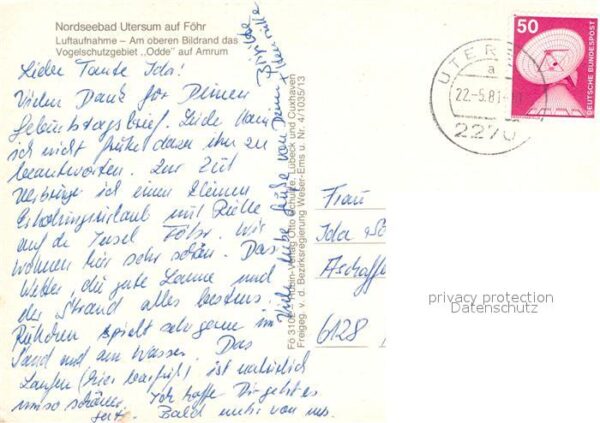 Nordseebad Utersum auf Föhr
Luftaufnahme – Am oberen Bildrand das
Vogelschutzgebiet „Odde" auf Amrum
Liebe Tante Ida!
Vielen Dank für Deinen
Geburtstagsbrief. Leider kam
ich nicht früher dazu ihn zu
beantworten. Zur Zeit
verbringe ich einen kleinen
Erholungsurlaub mit
auf der Insel Föhr. Wir
wohnen hier sehr schön. Das
Wetter, die gute Laune und
der Strand alles bestens.
spielt sehr gerne im
Sand und am Wasser. Das
Laufen (hier barfuß) ist natürlich
umso schöner. Ich hoffe Dir geht es
gut. Bald mehr von uns.
liebe Grüße von Deiner Brigitte
Schöning-Verlag Otto Schulze, Lübeck und Cuxhaven
Freigeg. v. d. Bezirksregierung Weser-Ems u. Nr. 4/1035/13
UTER
a
22.-5.81
2270
50
DEUTSCHE BUNDESPOST
Frau
Ida
Aschaffe
6128
privacy protection
Datenschutz